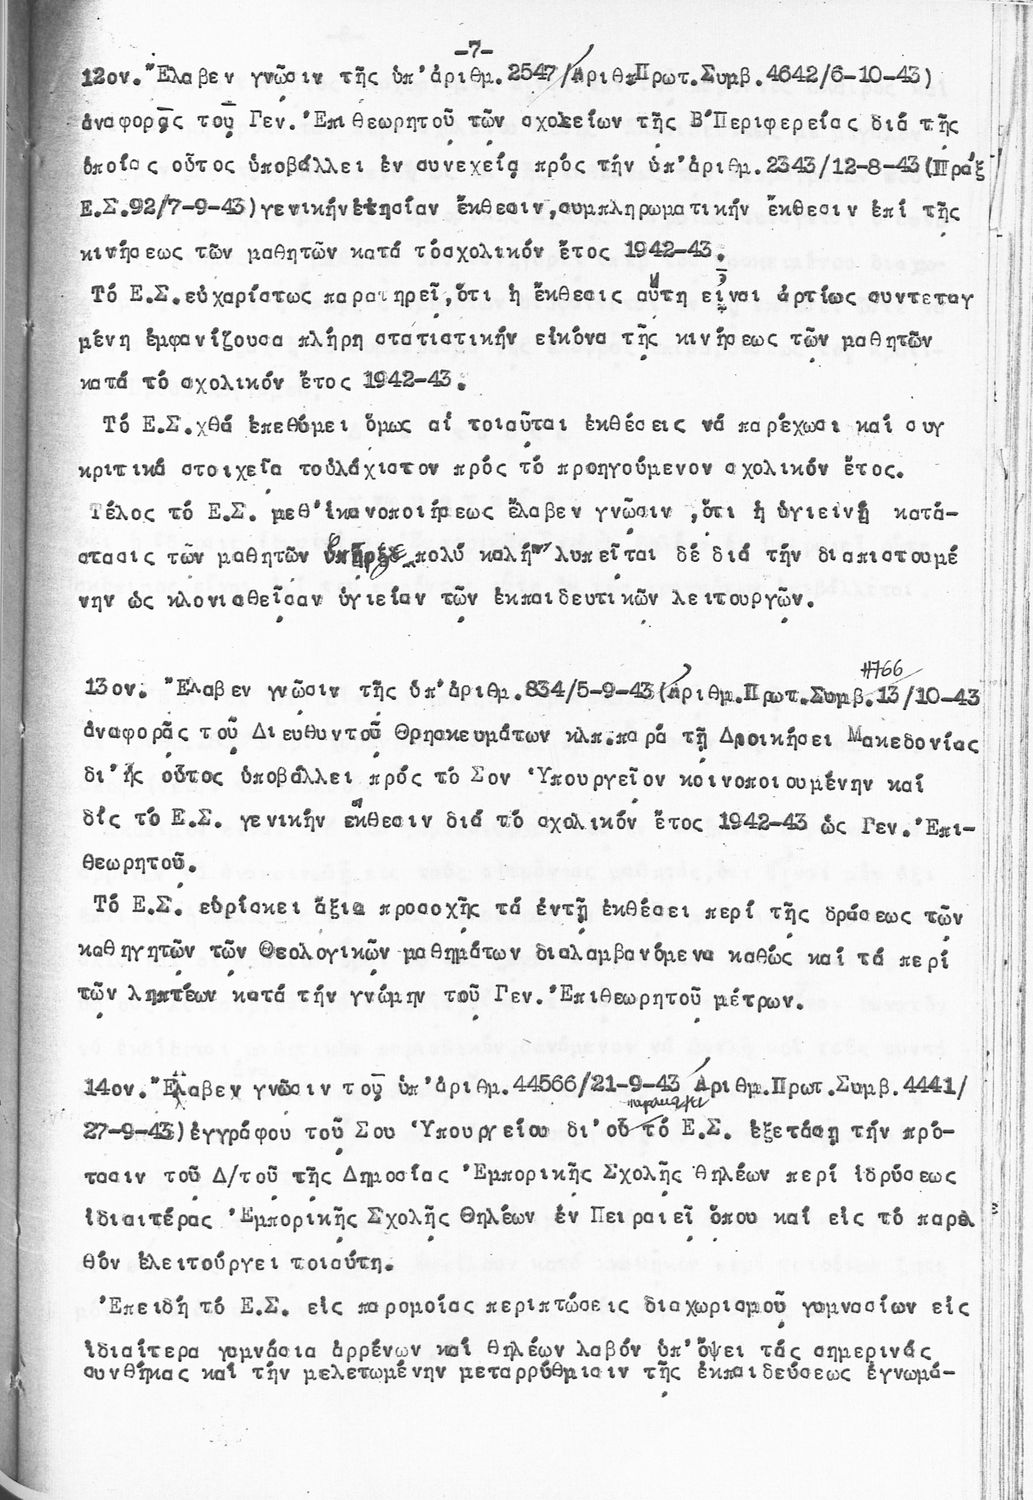 -7-
12ον. "Ελαβεν γνῶσιν τῆς ὑπ'ἀριθμ.2547/Ἀριθ.Πρωτ.Συμβ.4642/6-10-43)
ἀναφορᾶς τοῦ Γεν.'Επιθεωρητοῦ τῶν σχολείων τῆς Β'Περιφερείας διά τῆς
ὁποίας οὗτος ὑποβάλλει ἐν συνεχείᾳ πρός τήν ὑπ'ἀριθμ.2343/12-8-43(Πράξ
Ε.Σ.92/7-9-43)γενικήν ἐτησίαν ἔκθεσιν,συμπληρωματικήν ἔκθεσιν ἐπί τῆς
κινήσεως τῶν μαθητῶν κατά τό σχολικόν ἔτος 1942-43.
Τό Ε.Σ.εὐχαρίστως παρατηρεῖ,ὅτι ἡ ἔκθεσις αὕτη εἶναι ἀρτίως συντεταγ
μένη ἐμφανίζουσα πλήρη στατιστικήν εἰκόνα τῆς κινήσεως τῶν μαθητῶν
κατά τό σχολικόν ἔτος 1942-43.
Τό Ε.Σ.χθά ἐπεθύμει ὅμως αἱ τοιαῦται ἐκθέσεις νά παρέχωσι καί συγ
κριτικά στοιχεῖα τοὐλάχιστον πρός τό προηγούμενον σχολικόν ἔτος.
Τέλος τό Ε.Σ. μεθ'ἱκανοποιήσεως ἔλαβεν γνῶσιν ,ὅτι ἡ ὑγιεινή κατά-
στασις τῶν μαθητῶν ὑπῆρξε πολύ καλή λυπεῖται δέ διά τήν διαπιστουμέ
νην ὡς κλονισθεῖσαν ὑγιείαν τῶν ἐκπαιδευτικῶν λειτουργῶν.
11766
13ον. "Ελαβεν γνῶσιν τῆς ὑπ'ἀριθμ.834/5-9-43(Ἀριθμ.Πρωτ.Συμβ.13/10-43
ἀναφορᾶς τοῦ Διευθυντοῦ Θρησκευμάτων κλπ.παρά τῇ Διοικήσει Μακεδονίας
δι'ἧς οὗτος ὑποβάλλει πρός τό Σον 'Υπουργεῖον κοινοποιουμένην καί
δίς τό Ε.Σ. γενικήν ἔκθεσιν διά τό σχολικόν ἔτος 1942-43 ὡς Γεν.'Επι-
θεωρητοῦ.
Τό Ε.Σ. εὑρίσκει ἄξια προσοχῆς τά ἐντῇ ἐκθέσει περί τῆς δράσεως τῶν
καθηγητῶν τῶν Θεολογικῶν μαθημάτων διαλαμβανόμενα καθώς καί τά περί
τῶν ληπτέων κατά τήν γνώμην τοῦ Γεν.'Επιθεωρητοῦ μέτρων.
14ον. "Ελαβεν γνῶσιν τοῦ ὑπ'ἀριθμ.44566/21-9-43 Ἀριθμ.Πρωτ.Συμβ.4441/
27-9-43)ἐγγράφου τοῦ Σου 'Υπουργείου δι'οὗ τό Ε.Σ. ἐξετάσῃ τήν πρό-
τασιν τοῦ Δ/τοῦ τῆς Δημοσίας 'Εμπορικῆς Σχολῆς Θηλέων περί ἱδρύσεως
ἰδιαιτέρας 'Εμπορικῆς Σχολῆς Θηλέων ἐν Πειραιεῖ ὅπου καί εἰς τό παρελ
θόν ἐλειτούργει τοιαύτη.
'Επειδή τό Ε.Σ. εἰς παρομοίας περιπτώσεις διαχωρισμοῦ γυμνασίων εἰς
ἰδιαίτερα γυμνάσια ἀρρένων καί θηλέων λαβόν ὑπ'ὄψει τάς σημερινάς
συνθήκας καί τήν μελετωμένην μεταρρύθμισιν τῆς ἐκπαιδεύσεως ἐγνωμά-